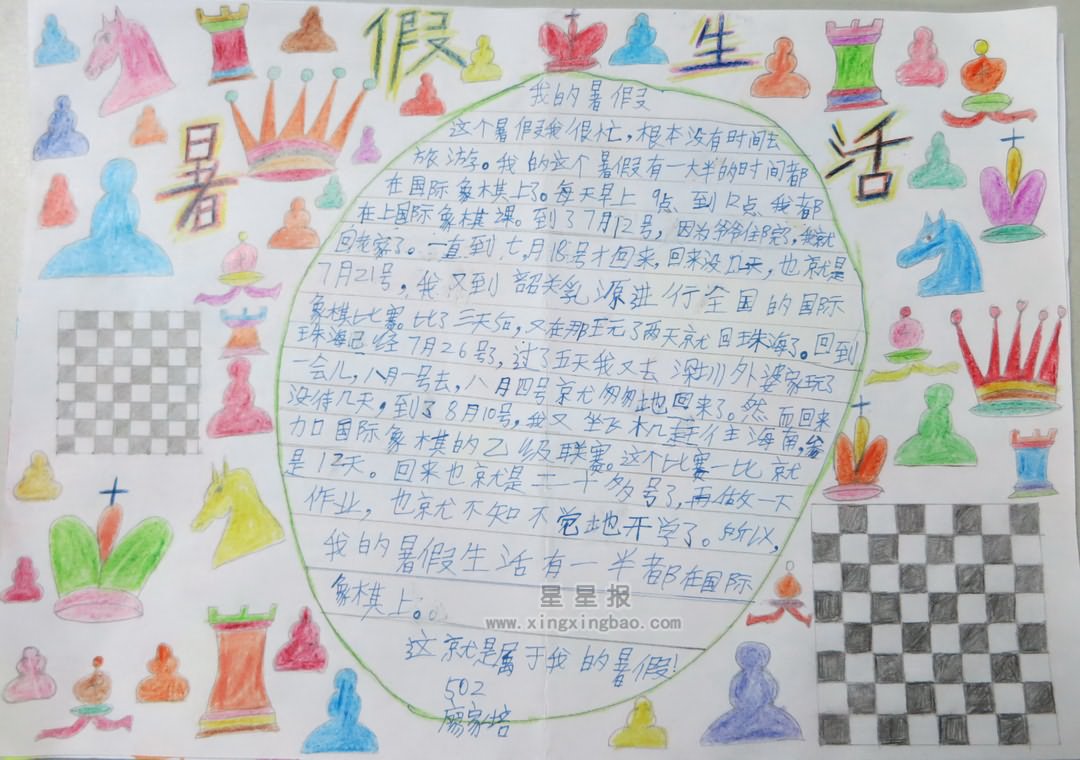 暑假生活
我的暑假
这个暑假我很忙，根本没有时间去
旅游。我的这个暑假有一大半的时间都
在国际象棋上了。每天早上9点到12点我都
在上国际象棋课。到了7月12号，因为爷爷住院了，我就
回老家了。一直到七月18号才回来，回来没几天，也就是
7月21号，我又到韶关乳源进行全国的国际
象棋比赛。比了三天后，又在那玩了两天就回珠海了。回到
珠海已经7月26号了，过了五天我又去深圳外婆家玩了
一会儿，八月一号去，八月四号就匆匆地回来了。然而回来
没待几天，到了8月10号，我又坐飞机赶往海南，参
加国际象棋的乙级联赛。这个比赛一比就
是12天。回来也就是二十多号了，再做一下
作业，也就不知不觉地开学了。所以，
我的暑假生活有一半都在国际
象棋上。
这就是属于我的暑假！
502
廖家培
星星报
www.xingxingbao.com